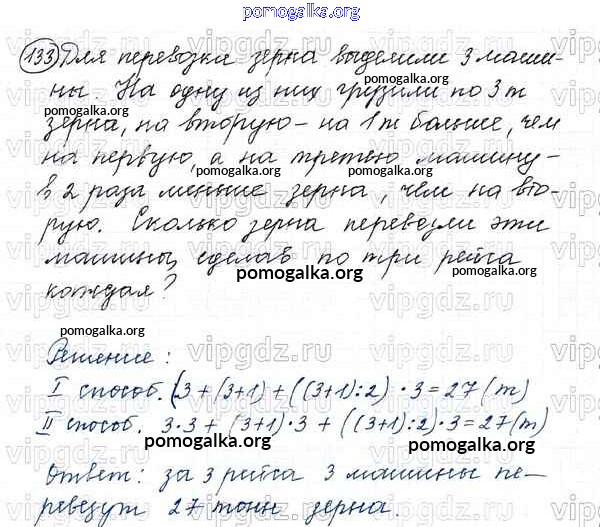 pomogalka.org
133 Для перевозки зерна выделили 3 маши-
ны. На одну из них грузили по 3 т
pomogalka.org
зерна, на вторую – на 1 т больше, чем
на первую, а на третью машину –
pomogalka.org
в 2 раза меньше зерна, чем на вто-
рую. Сколько зерна перевезли эти
машины, сделав по три рейса
pomogalka.org
каждая?
pomogalka.org
Решение:
I способ. (3 + (3+1) + ((3+1):2) · 3 = 27 (т)
II способ. 3·3 + (3+1)·3 + ((3+1):2)·3 = 27 (т)
pomogalka.org
Ответ: за 3 рейса 3 машины пе-
pomogalka.org
ревезут 27 тонн зерна.
vipgdz.ru